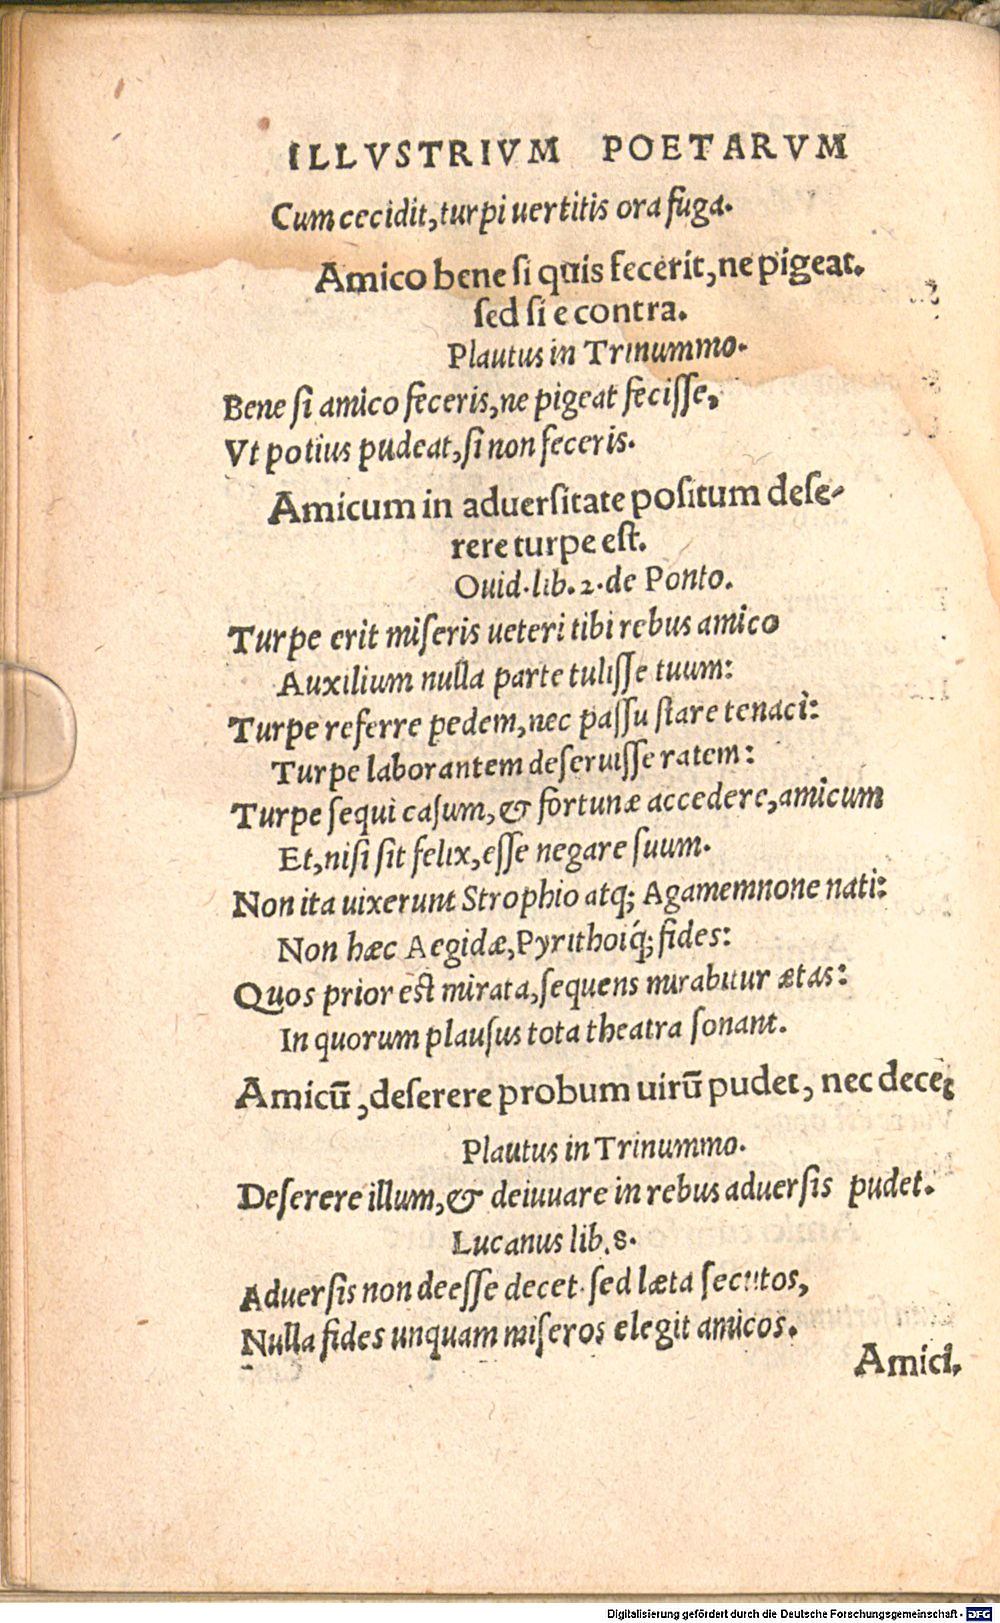 ILLVSTRIVM POETARVM
Cum cecidit, turpi uertitis ora fuga.
Amico bene si quis fecerit, ne pigeat.
sed si e contra.
Plautus in Trinummo.
Bene si amico feceris, ne pigeat fecisse,
Vt potius pudeat, si non feceris.
Amicum in aduersitate positum dese-
rere turpe est.
Ouid. lib. 2. de Ponto.
Turpe erit miseris ueteri tibi rebus amico
Auxilium nulla parte tulisse tuum:
Turpe referre pedem, nec passu stare tenaci:
Turpe laborantem deseruisse ratem:
Turpe sequi casum, & fortunæ accedere, amicum
Et, nisi sit felix, esse negare suum.
Non ita uixerunt Strophio atq; Agamemnone nati:
Non hæc Aegidæ, Pyrithoiq́; fides:
Quos prior est mirata, sequens mirabitur ætas:
In quorum plausus tota theatra sonant.
Amicū, deserere probum uirū pudet, nec decet
Plautus in Trinummo.
Deserere illum, & deiuuare in rebus aduersis pudet.
Lucanus lib. 8.
Aduersis non deesse decet. sed læta secutos,
Nulla fides unquam miseros elegit amicos.
Amici,
Digitalisierung gefördert durch die Deutsche Forschungsgemeinschaft - DFG